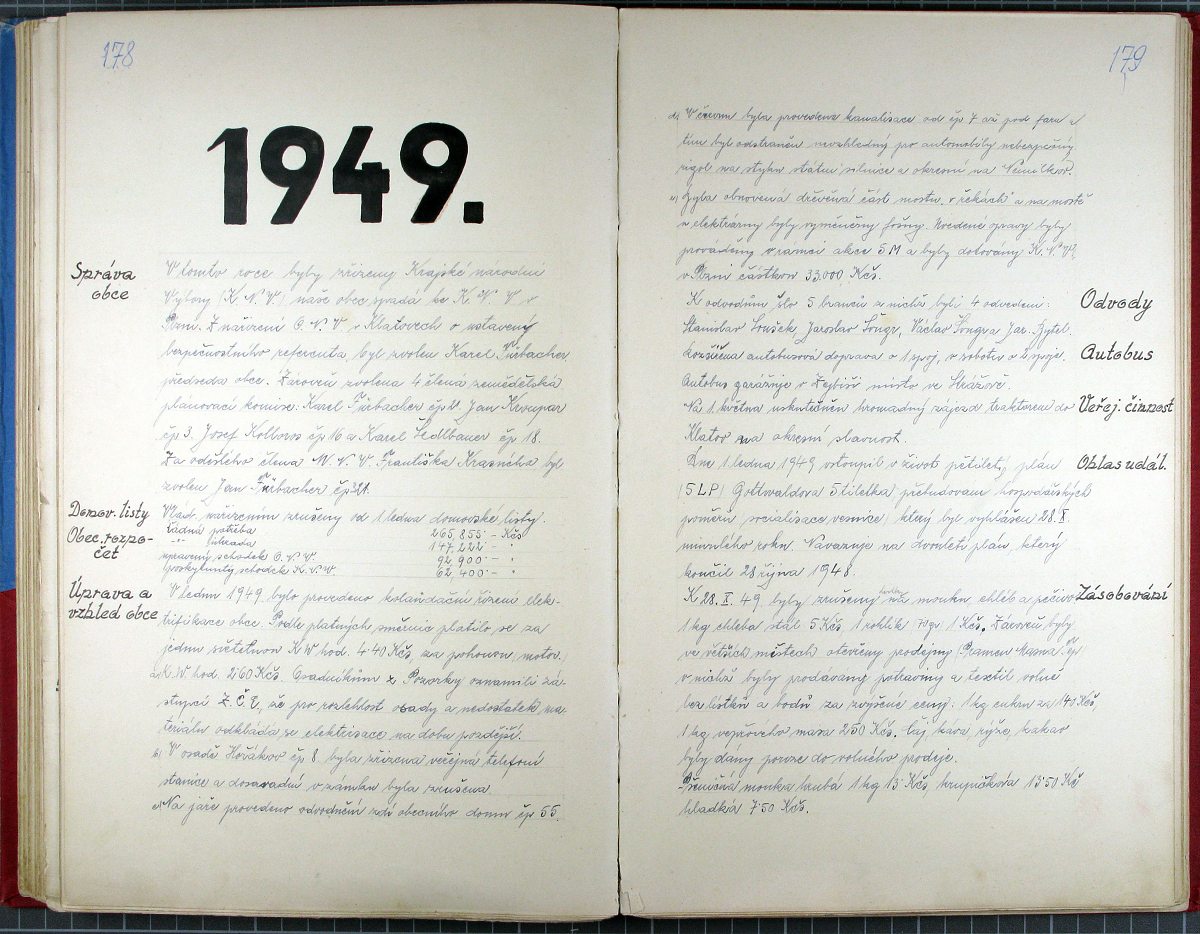 178
1949.
Správa obce
V tomto roce byly zřízeny Krajské národní
Výbory (K. N. V.) naše obec spadá ke K. N. V. v
Plzni. Z nařízení O. N. V. v Klatovech o ustavení
bezpečnostního referenta, byl zvolen Karel Fürbacher
předseda obce. Zároveň zvolena 4 člená zemědělská
plánovací komise: Karel Fürbacher čp. Jan Kvapar
čp 3. Josef Kolloros čp 16 a Karel Sedlbauer čp 18.
Za odešlého člena M. N. V. Františka Krásného byl
zvolen Jan Fürbacher čp
Domov. listy
Vlád. nařízením zrušeny od 1 ledna domovské listy.
Obec. rozpočet
řádná potřeba 265,855·– Kčs
" úhrada 147,222·– "
upravený schodek O. N. V. 92,900·– "
poskytnutý schodek K. N. V. 62,400·– "
Úprava a vzhled obce
V lednu 1949 bylo provedeno kolaudační řízení elek-
trifikace obce. Podle platných směrnic platilo se za
jednu světelnou KW hod. 4·40 Kčs, za pohonou motor.
K. W. hod. 2·60 Kčs. Osadníkům z Pozorky oznámili zá-
stupci Z. Č. E, že pro rozlehlost osady a nedostatek ma-
teriálu odkládá se elektrisace na dobu pozdější.
b) V osadě Hořákov čp 8. byla zřízena veřejná telefoní
stanice a dosavadní v zámku byla zrušena.
c) Na jaře provedeno odvodnění zdí obecního domu čp 55.
179
d) V červnu byla provedena kanalisace od čp 7 až pod faru
tím byl odstraněn nevzhledný pro automobily nebezpečný
rigol na styku státní silnice a okresní na Němčice.
e) Byla obnovená dřevěná část mostu v řekách a na mostě
u elektrárny byly vyměněny fošny. Uvedené opravy byly
prováděny v rámci akce 5 M a byly dotovány K. N. V.
v Plzni částkou 33.000 Kčs.
Odvody
K odvodům šlo 5 branců z nichž byli 4 odvedeni:
Stanislav Soušek, Jaroslav Šougr, Václav Šougr a Jar. Bytel.
Autobus
Rozšířena autobusová doprava o 1 spoj, v sobotu o 2 spoje.
Autobus garážuje v Dejbiši místo ve Strážově.
Veřej. činnost
Na 1. května uskutečněn hromadný zájezd traktorem do
Klatov na okresní slavnost.
Ohlas udál.
Dne 1 ledna 1949 vstoupil v život pětiletý plán
(5 LP) Gottwaldova 5 tiletka, přebudování hospodářských
poměrů socialisace vesnice, který byl vyhlášen 28. X.
minulého roku. Navazuje na dvouletý plán, který
končil 28 října 1948.
Zásobování
K 28. X. 49. byly zrušeny lístky na mouku, chléb a pečivo
1 kg chleba stál 5 Kčs, 1 rohlík 1 Kčs. Zároveň byly
ve větších městech otevřeny prodejny Pramen Masna
v nichž byly prodávány potraviny a textil volně
bez lístků a bodů za zvýšené ceny: 1 kg cukru za 140 Kčs,
1 kg vepřového masa 250 Kčs. Čaj káva rýže, kakao
byly dány pouze do volného prodeje.
Pšeničná mouka hrubá 1 kg 13 Kčs, krupičková 13·50 Kč
hladká 7·50 Kčs.